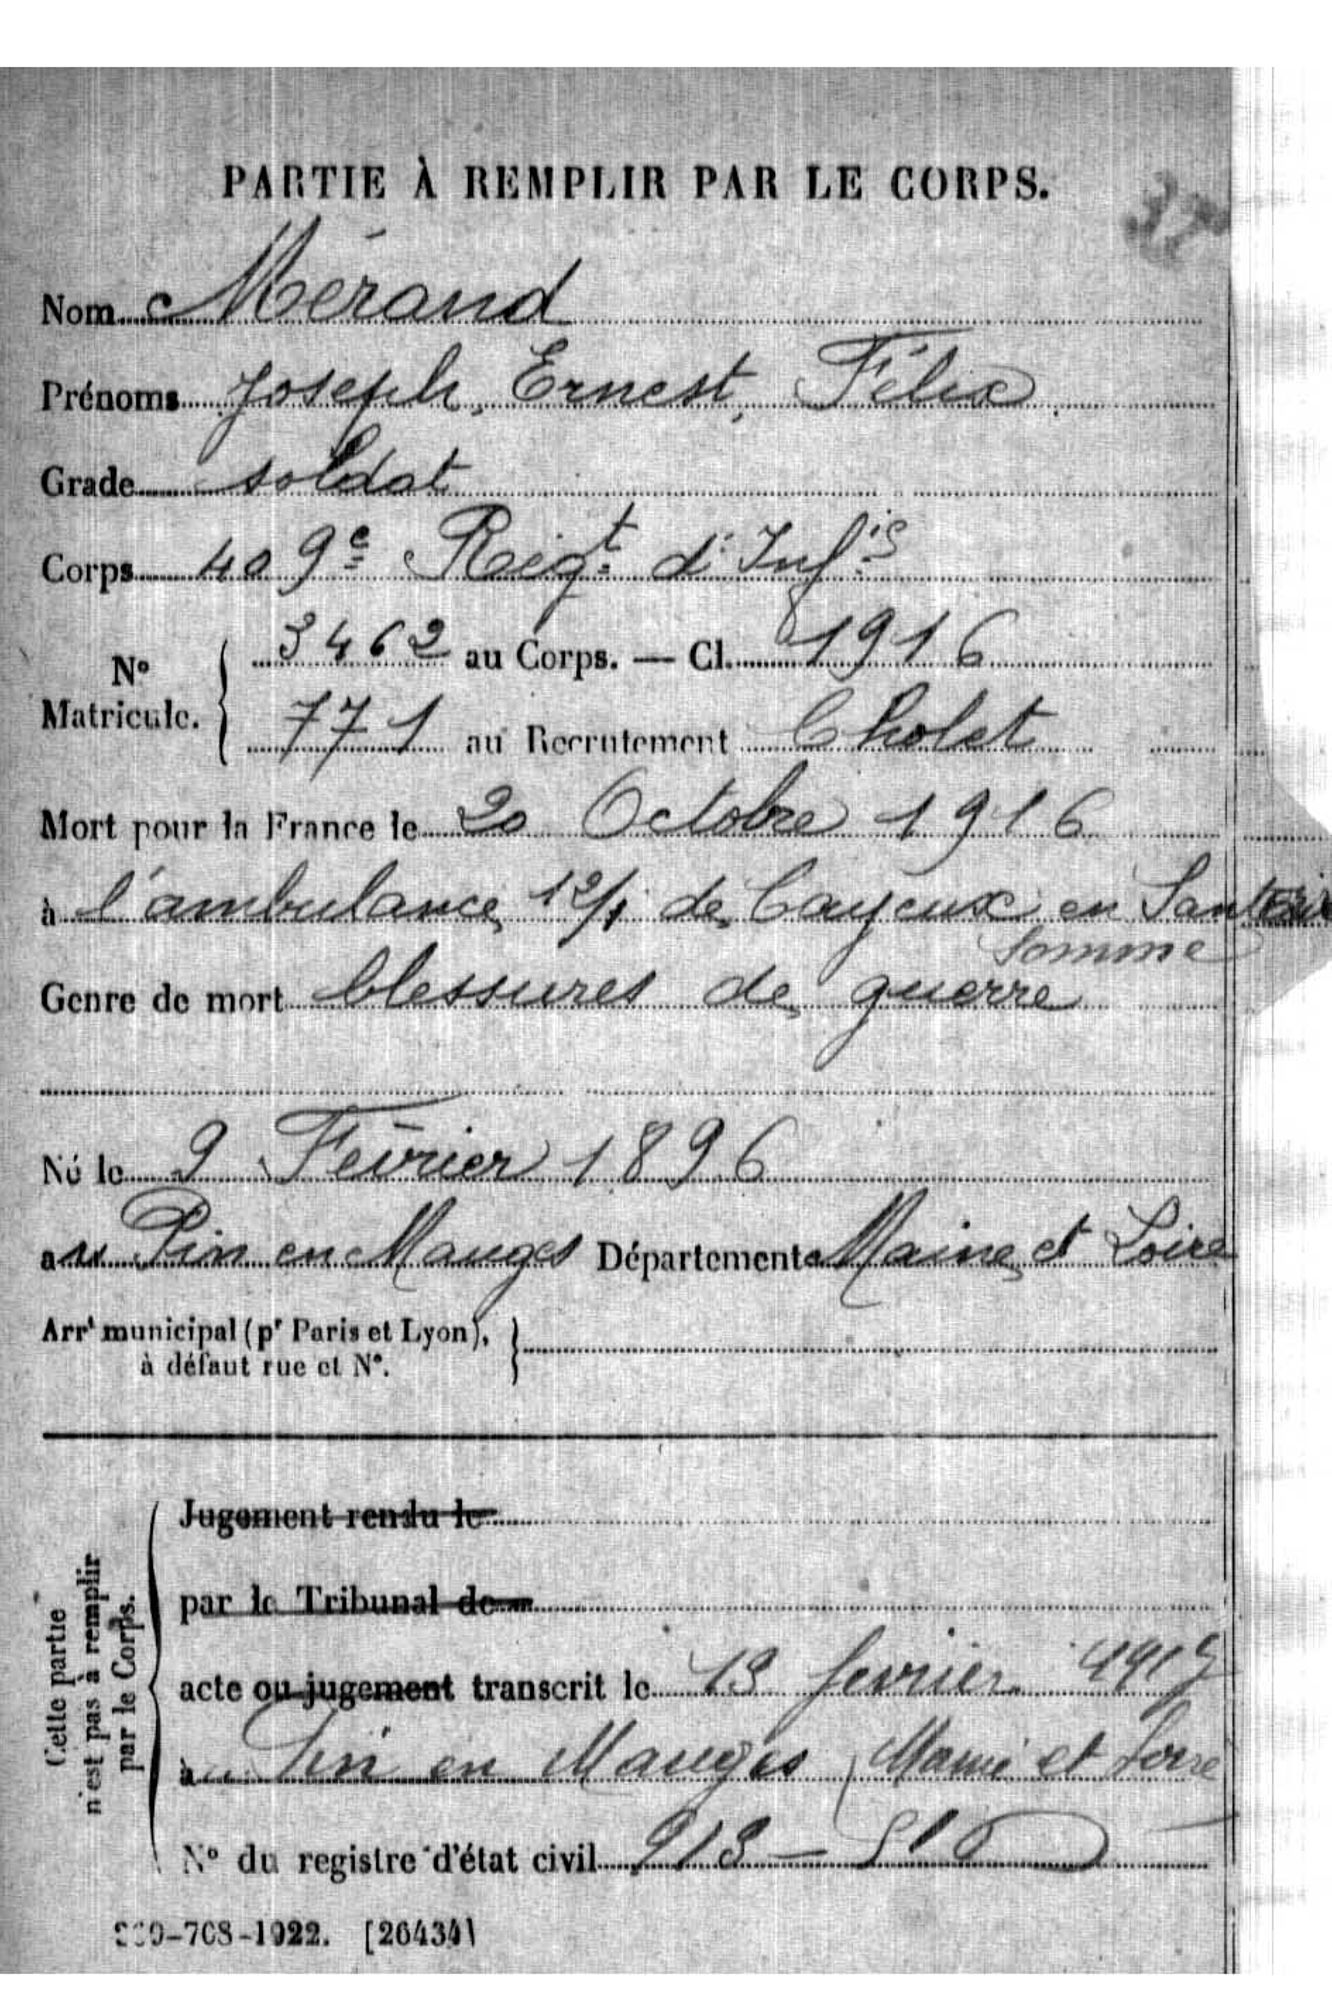 PARTIE À REMPLIR PAR LE CORPS.
Nom Mérand
Prénoms Joseph, Ernest, Félix
Grade soldat
Corps 409e Régt d'Infie
No Matricule. { 3462 au Corps. — Cl. 1916
771 au Recrutement Cholet
Mort pour la France le 20 Octobre 1916
à l'ambulance 12/1 de Cayeux en Santerre
Somme
Genre de mort blessures de guerre
Né le 9 Février 1896
au Pin en Mauges Département Maine et Loire
Arrt municipal (pr Paris et Lyon), à défaut rue et No. }
Cette partie n'est pas à remplir par le Corps.
Jugement rendu le
par le Tribunal de
acte ou jugement transcrit le 13 février 1917
à Pin en Mauges (Maine et Loire
No du registre d'état civil
-708-1922. [26434]